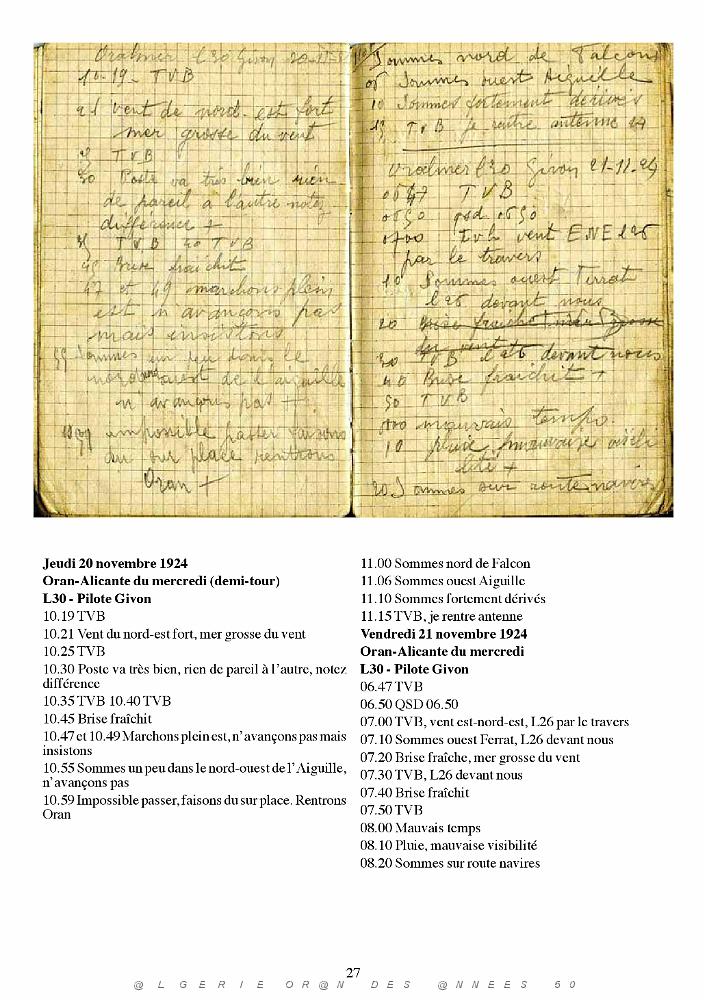 Oralmer L30 Givon 20-11-24
10-19- TVB
21 Vent de nord-est fort
mer grosse du vent
25 TVB
30 Poste va très bien rien
de pareil à l'autre notez
différence +
35 TVB 40 TVB
45 Brise fraîchit
47 et 49 marchons plein
est n'avançons pas
mais insistons
55 Sommes un peu dans le
nord ouest de l'aiguille
n'avançons pas +
1059 impossible passer faisons
du sur place rentrons
Oran +
Sommes nord de Falcon
06 Sommes ouest Aiguille
10 Sommes fortement dérivés
15 TVB je rentre antenne
Oralmer L30 Givon 21-11-24
0647 TVB
0650 qsd 0650
0700 tvb vent ENE l26
par le travers
10 Sommes ouest Ferrat
l26 devant nous
20 Brise fraîche mer grosse
du vent
30 TVB l26 devant nous
40 Brise fraîchit +
50 TVB
0800 mauvais temps.
10 pluie mauvaise visibi
lité +
20 Sommes sur route navires
Jeudi 20 novembre 1924
Oran-Alicante du mercredi (demi-tour)
L30 - Pilote Givon
10.19 TVB
10.21 Vent du nord-est fort, mer grosse du vent
10.25 TVB
10.30 Poste va très bien, rien de pareil à l'autre, notez
différence
10.35 TVB 10.40 TVB
10.45 Brise fraîchit
10.47 et 10.49 Marchons plein est, n'avançons pas mais
insistons
10.55 Sommes un peu dans le nord-ouest de l'Aiguille,
n'avançons pas
10.59 Impossible passer, faisons du sur place. Rentrons
Oran
11.00 Sommes nord de Falcon
11.06 Sommes ouest Aiguille
11.10 Sommes fortement dérivés
11.15 TVB, je rentre antenne
Vendredi 21 novembre 1924
Oran-Alicante du mercredi
L30 - Pilote Givon
06.47 TVB
06.50 QSD 06.50
07.00 TVB, vent est-nord-est, L26 par le travers
07.10 Sommes ouest Ferrat, L26 devant nous
07.20 Brise fraîche, mer grosse du vent
07.30 TVB, L26 devant nous
07.40 Brise fraîchit
07.50 TVB
08.00 Mauvais temps
08.10 Pluie, mauvaise visibilité
08.20 Sommes sur route navires
27
@ L G E R I E O R @ N D E S @ N N E E S 5 0